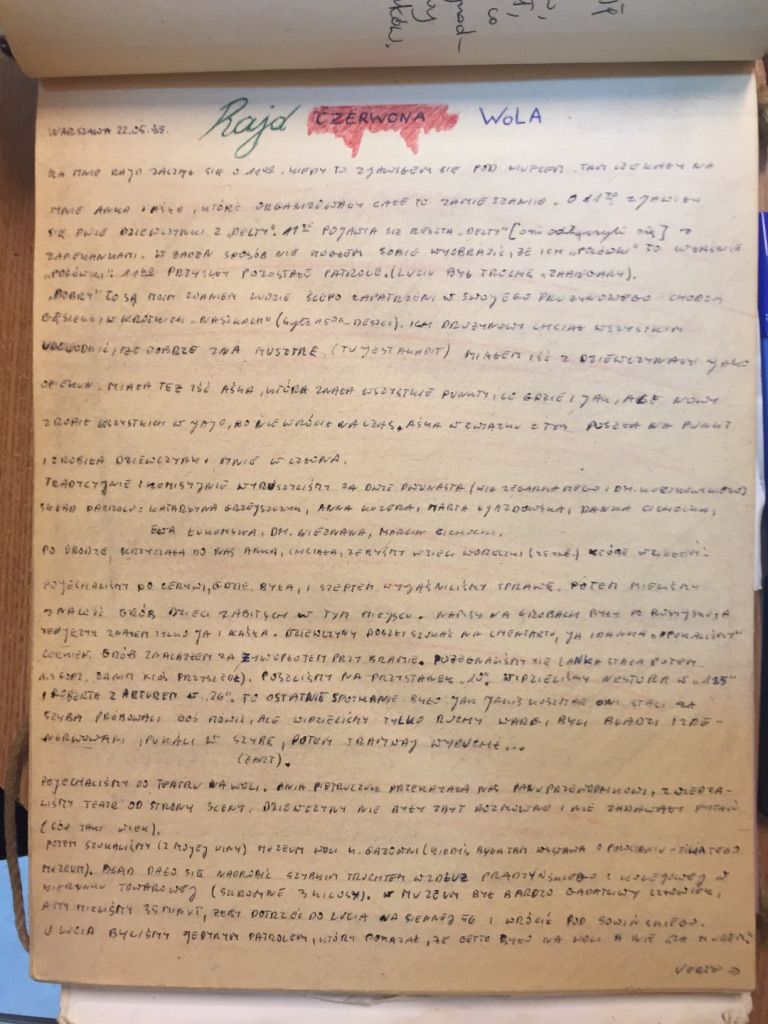 co
ków.
Rajd CZERWONA WOLA
WARSZAWA 22.05.
DLA MNIE RAJD ZACZĄŁ SIĘ O KIEDY TO ZJAWIŁEM SIĘ POD HUFCEM. TAM CZEKAŁY NA
MNIE ANKA I AŚKA, KTÓRE ORGANIZOWAŁY CAŁE TO ZAMIESZANIE. O ZJAWIŁY
SIĘ DWIE DZIEWCZYNKI Z „DELTY”. POJAWIA SIĘ RESZTA „DELTY” Z
ZAPIEKANKAMI. W ŻADEN SPOSÓB NIE MOGŁEM SOBIE WYOBRAZIĆ, ŻE ICH TO WŁAŚNIE
PRZYSZŁY POZOSTAŁE PATROLE. (LUCIU BYŁ TROCHĘ „ZABIEGANY).
„BOBRY” TO SĄ MOIM ZDANIEM LUDZIE ŚLEPO ZAPATRZENI W SWOJEGO DRUŻYNOWEGO - CHODZĄ
GĘSIEGO, W KRÓTKICH ICH DRUŻYNOWY CHCIAŁ WSZYSTKIM
UDOWODNIĆ, ŻE DOBRZE ZNA MUSZTRĘ. (TU JEST AKAPIT) MIAŁEM IŚĆ Z DZIEWCZYNAMI JAKO
OPIEKUN. MIAŁA TEŻ IŚĆ AŚKA, KTÓRA ZNAŁA WSZYSTKIE PUNKTY, CO GDZIE I JAK, ALE NOWY
ZROBIŁ WSZYSTKICH W JAJO, BO NIE WRÓCIŁ NA CZAS. AŚKA W ZWIĄZKU Z TYM POSZŁA NA PUNKT
I ZROBIŁA DZIEWCZYNY I MNIE W CZŁONA.
TRADYCYJNIE I KOMISYJNIE WYRUSZYLIŚMY ZA DWIE DWUNASTA (WG ZEGARKA MEGO I DH.
SKŁAD PATROLU: KATARZYNA GRZEJSZCZYK, ANNA KOZERA, MARTA UJAZDOWSKA, DANKA CICHOCKA,
EWA ŁUKOMSKA, DH. NIEZNANA, MARCIN CICHOCKI.
PO DRODZE KRZYCZAŁA DO NAS ANKA, CHCIAŁA, ŻEBYŚMY WZIĘLI WORECZKI KTÓRE
POJECHALIŚMY DO CERKWI, GDZIE BYŁA, I SZEPTEM WYJAŚNILIŚMY SPRAWĘ. POTEM MIELIŚMY
ZNALEŹĆ GRÓB DZIECI ZABITYCH W TYM MIEJSCU. NAPISY NA GROBACH BYŁY PO ROSYJSKU, A
TEN JĘZYK ZNAŁEM TYLKO JA I KAŚKA. DZIEWCZYNY POSZŁY SZUKAĆ NA CMENTARZU, JA I DANKA
GRÓB ZNALAZŁEM ZA ŻYWOPŁOTEM PRZY BRAMIE. POŻEGNALIŚMY SIĘ (ANKA STAŁA POTEM
1.5 GODZ. ZANIM KTOŚ PRZYSZEDŁ). POSZLIŚMY NA PRZYSTANEK „10”. WIDZIELIŚMY NESTORA W „135”
I ROBERTA Z ARTUREM W „26”. TO OSTATNIE SPOTKANIE BYŁO JAK JAKIŚ KOSZMAR ONI STALI ZA
SZYBĄ PRÓBOWALI COŚ MÓWIĆ, ALE WIDZIELIŚMY TYLKO RUCHY WARG, BYLI BLADZI I ZDE-
NERWOWANI, PUKALI W SZYBĘ, POTEM TRAMWAJ WYBUCHŁ...
(ŻART).
POJECHALIŚMY DO TEATRU NA WOLI. ANIA PIETRUCZUK PRZEKAZAŁA NAS PANU PRZEWODNIKOWI. ZWIEDZA-
LIŚMY TEATR OD STRONY SCENY. DZIEWCZYNY NIE BYŁY ZBYT ROZMOWNE I NIE ZADAWAŁY PYTAŃ
(CÓŻ TAKI WIEK).
POTEM SZUKALIŚMY (Z MOJEJ WINY) MUZEUM WOLI K. GAZOWNI (KIEDYŚ BYŁA TAM WYSTAWA O POWSTANIU - TEGO
MUZEUM). BŁĄD DAŁO SIĘ NADROBIĆ SZYBKIM TRUCHTEM WZDŁUŻ PRĄDZYŃSKIEGO I KOLEJOWEJ W
KIERUNKU TOWAROWEJ (SKROMNE 3 KILOSY). W MUZEUM BYŁ BARDZO GADATLIWY CZŁOWIEK,
A MY MIELIŚMY 35 MINUT, ŻEBY DOTRZEĆ DO LUCIA NA SIENNEJ I WRÓCIĆ POD SOWIŃSKIEGO.
U LUCIA BYLIŚMY JEDYNYM PATROLEM, KTÓRY POKAZAŁ, ŻE GETTO BYŁO NA WOLI A NIE
VERTE